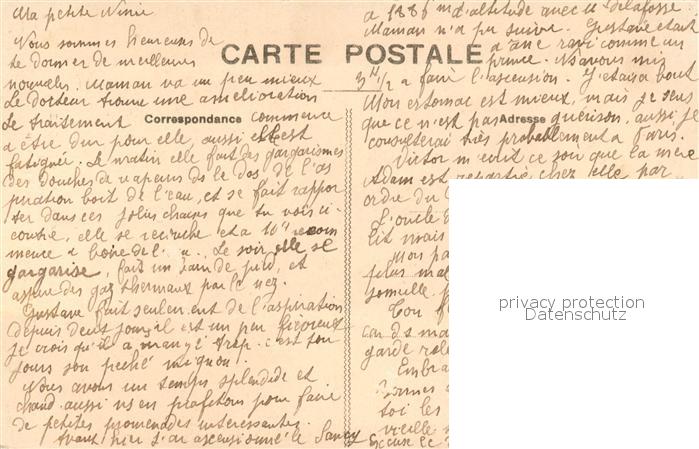 Ma petite Ninie
Nous sommes heureuses de
te donner de meilleures
nouvelles. Maman va un peu mieux
Le docteur trouve une amélioration
Le traitement commence
a être dur pour elle, aussi elle est
fatiguée. Le matin elle fait des gargarismes
des douches de vapeurs ds le dos, de l'as
piration boit de l'eau, et se fait rappor
ter dans ces jolies chaises que tu vois ci-
contre, elle se recouche et a 10h recom
mence a boire de l'eau. Le soir elle se
gargarise, fait un bain de pied, et
aspire des gaz thermaux par le nez.
Gustave fait seulement de l'aspiration
depuis deux jours il est un peu fiévreux
je crois qu'il a mangé trop. c'est tou
jours son péché mignon!
Nous avons un temps splendide et
chaud aussi ns en profitons pour faire
de petites promenades intéressantes.
Avant hier j'ai ascensionné le Sancy
CARTE POSTALE
Correspondance
Adresse
a 1886 m d'altitude avec M Delafosse.
Maman n'a pu suivre. Gustave était
a âne ravi comme un
prince. Ns avons mis
3h 1/2 a faire l'ascension. J'étais a bout
Mon estomac est mieux, mais je sens
que ce n'est pas guérison, aussi je
consulterai très probablement a Paris.
Victor m'écrit ce soir que la mère
Adam est repartie chez elle par
ordre du
L'oncle
lit mais
Mon pa
plus mal
Ton
garde
Embra
Bonnes
toi les
vieille
Excuse le
privacy protection
Datenschutz